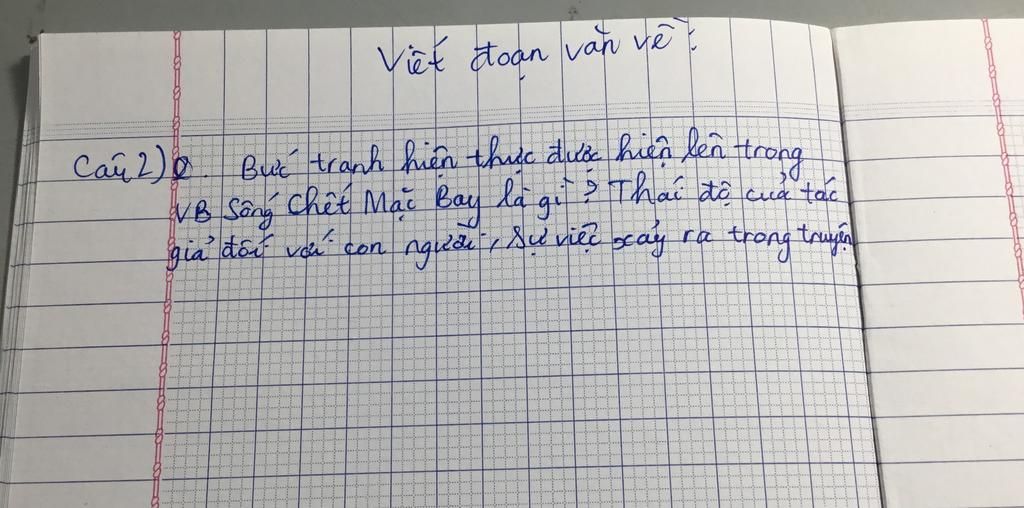 Viết đoạn văn về:
Câu 2) Bức tranh hiện thực được hiện lên trong
VB Sống Chết Mặc Bay là gì? Thái độ của tác
giả đối với con người, sự việc xảy ra trong truyện